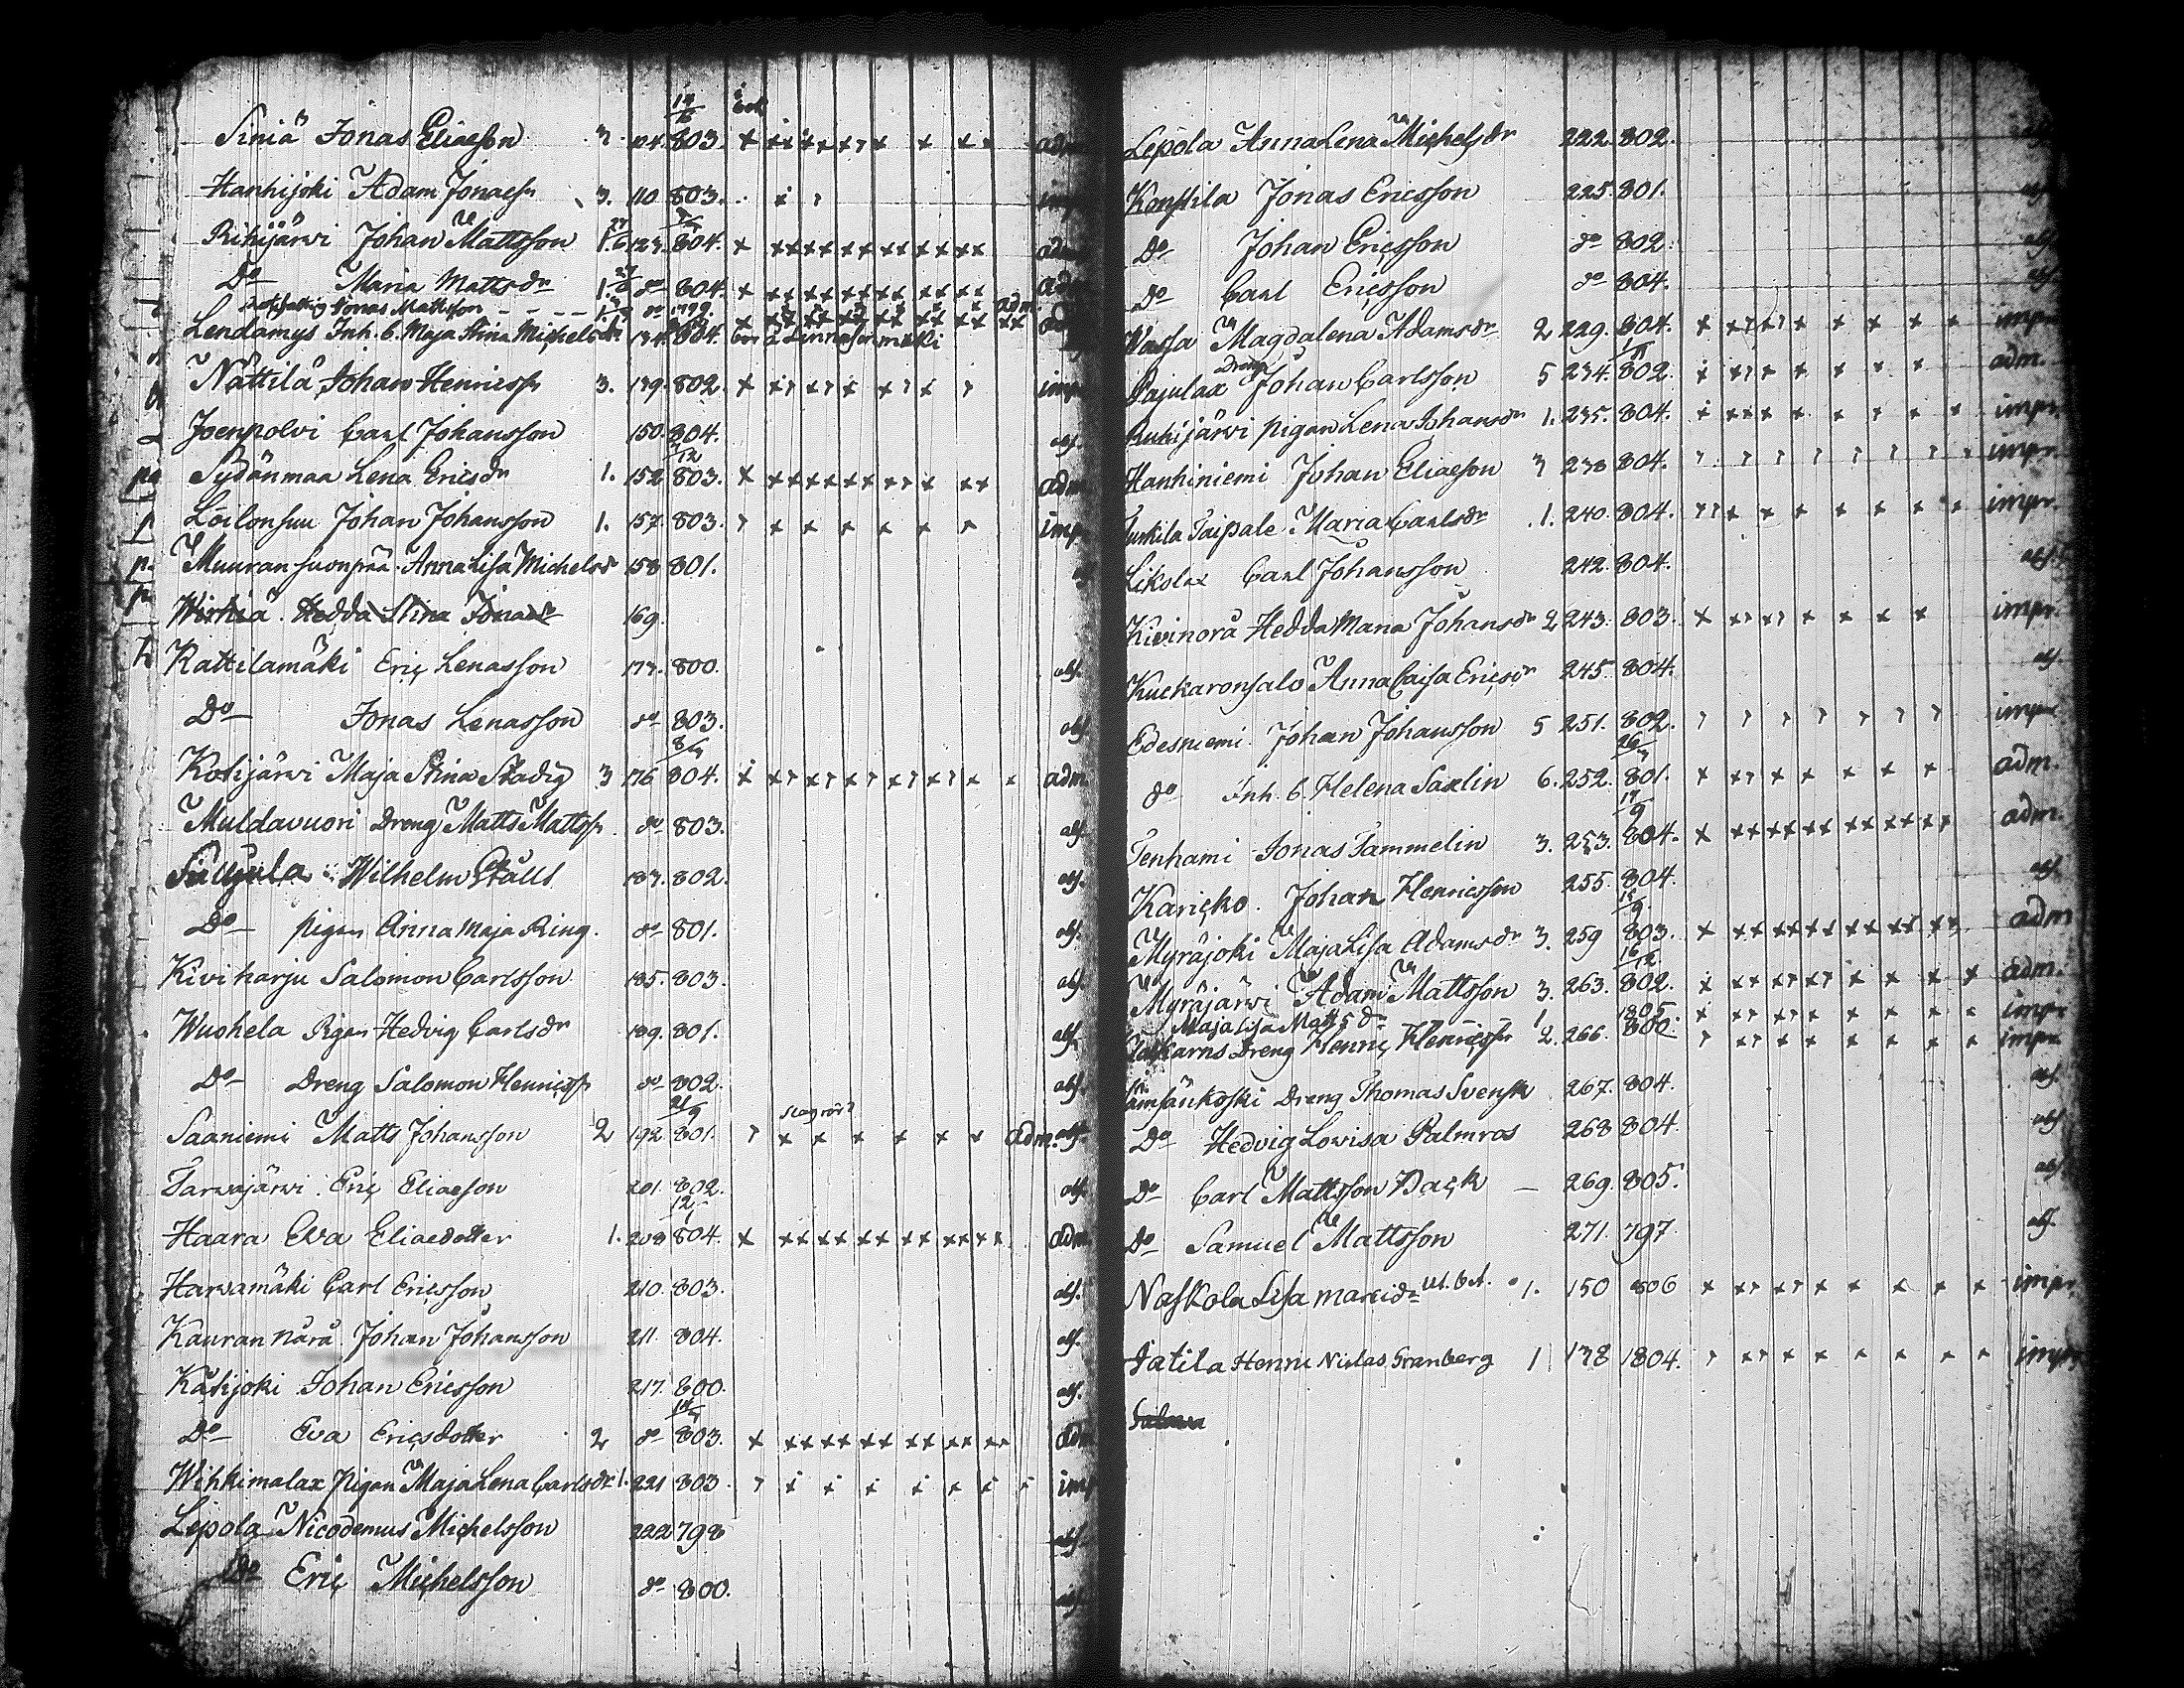 Siniä Jonas Eliaeson 3. 104. 803. adm
Hanhijoki Adam Jonaess. 3. 110 803. imp
Rihijärvi Johan Mattsson 1. 123. 804. adm
Do Maria Mattsdr 1. do 804. adm
Jonas Mattsson do 1799. adm.
Lendamys Inh. b. Maja Stina Michelsdr 134. 804.
Nättilä Johan Henricss. 3. 139. 802. imp
Joenpolvi Carl Johansson 150. 804. abs.
Sydänmaa Lena Ericsdr 1. 152 803. adm
Loilonsuu Johan Johansson 1. 157. 803. imp
Muuransuonpää Anna Lisa Michelsdr 158 801.
Wirhiä Hedda Stina Jonaedr 169.
Kattilamäki Eric Lenasson 173. 800. abs.
Do Jonas Lenasson do 803. abs.
Kohijärvi Maja Stina Stadig 3 176 804. adm
Muldavuori Dreng Matts Mattss. do 803. abs.
Wilhelm Ståhl 183. 802. abs.
Do pigan Anna Maja Ring. do 801. abs.
Kiviharju Salomon Carlsson 185. 803. abs.
Wuohela Pigan Hedvig Carlsdr 189. 801. abs.
Do Dreng Salomon Henricss. do 802. abs.
Saaniemi Matts Johansson 2 192 801. adm. abs.
Tarvajärvi Eric Eliaeson 201. 802. abs.
Haara Eva Eliaedotter 1. 208 804. adm
Harvamäki Carl Ericsson 210. 803. abs.
Kauran nårå Johan Johansson 211. 804. abs.
Kåhijoki Johan Ericsson 217. 800. abs.
Do Eva Ericsdotter 2 do 803. adm
Wihkimalax pigan Maja Lena Carlsdr 1. 221 803. imp
Lepola Nicodemus Michelsson 222 798 abs.
Do Eric Michelsson do 800. abs.
Lepola Anna Lena Michelsdr 222. 802.
Konttila Jonas Ericsson 225. 801. abs
Do Johan Ericsson do 802. abs
Do Carl Ericsson do 804. abs.
Wassa Magdalena Adamsdr 2 229. 804. impr
Pajulax Dreng Johan Carlsson 5 234. 802. adm.
Ruhijärvi pigan Lena Johansdr 1. 235. 804. impr.
Hanhiniemi Johan Eliaeson 3 238 804. impr.
Turkila Taipale Maria Carlsdr 1. 240. 804. impr.
Likolax Carl Johansson 242. 804. abs.
Kivinorå Hedda Maria Johansdr 2 243. 803. impr.
Kuckaronsalo Anna Caisa Ericsdr 245. 804. abs.
Edesniemi Johan Johansson 5 251. 802. impr
do Inh. b. Helena Saxlin 6. 252. 801. adm.
Tenhami Jonas Tammelin 3. 253. 804. adm.
Karicko Johan Henricsson 255. 804. abs
Myräjoki Maja Lisa Adamsdr 3. 259 803. adm
Myräjärvi Adam Mattsson 3. 263. 802. adm.
Maja Lisa Mattsdr 1 1805. impr
Dreng Henric Henricsson 2. 266. 800. impr
Dreng Thomas Svensk 267. 804. abs.
Do Hedvig Lovisa Palmros 268 804. abs
Do Carl Mattsson Back 269. 805. abs
Do Samuel Mattsson 271. 797. abs.
Naskola Lisa Marcidr 1. 150 806 impr.
Jatila Henric Niclas Granberg 1 138 1804. impr.